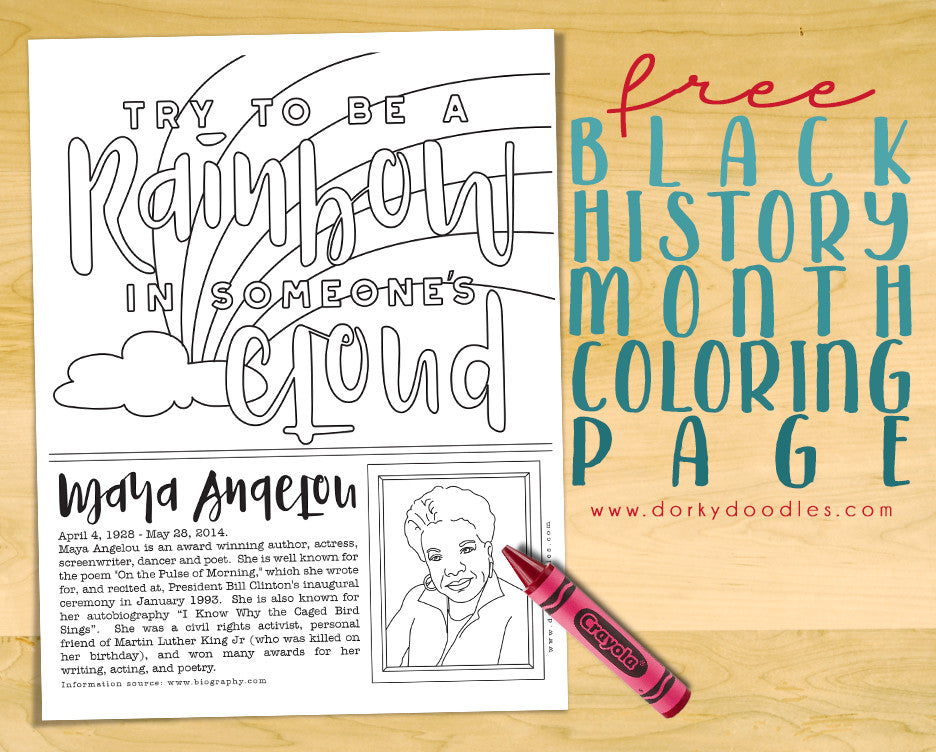 TRY TO BE A
Rainbow
IN SOMEONE'S
Cloud
Maya Angelou
April 4, 1928 - May 28, 2014.
Maya Angelou is an award winning author, actress,
screenwriter, dancer and poet. She is well known for
the poem "On the Pulse of Morning," which she wrote
for, and recited at, President Bill Clinton's inaugural
ceremony in January 1993. She is also known for
her autobiography "I Know Why the Caged Bird
Sings". She was a civil rights activist, personal
friend of Martin Luther King Jr (who was killed on
her birthday), and won many awards for her
writing, acting, and poetry.
Information source: www.biography.com
Crayola
free
BLACK
HISTORY
MONTH
COLORING
PAGE
www.dorkydoodles.com